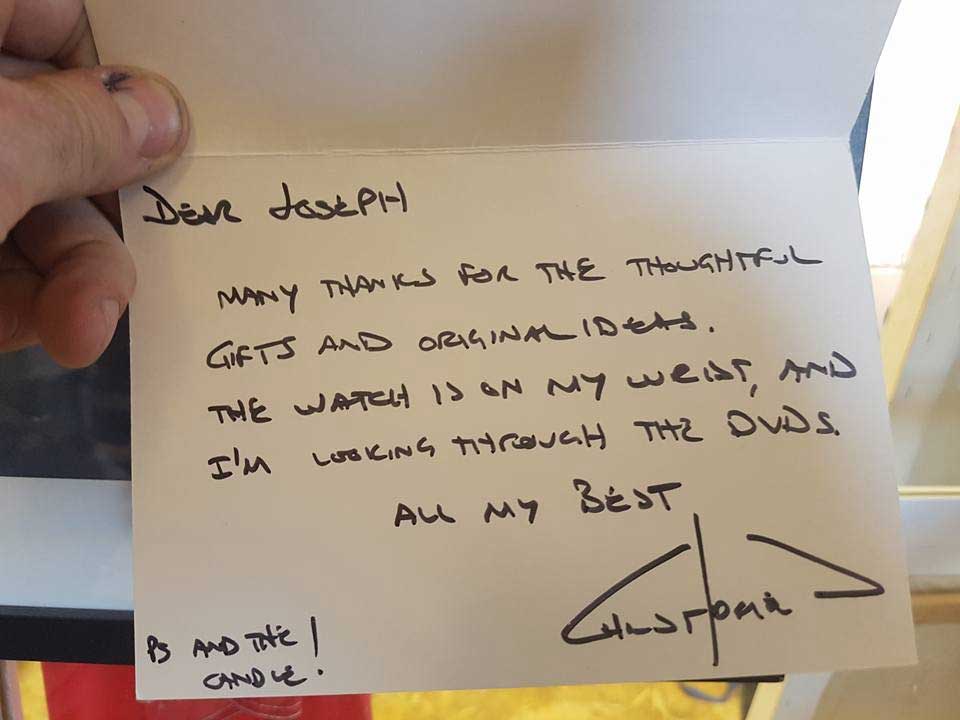 DEAR JOSEPH
MANY THANKS FOR THE THOUGHTFUL
GIFTS AND ORIGINAL IDEAS.
THE WATCH IS ON MY WRIST, AND
I'M LOOKING THROUGH THE DVDS.
ALL MY BEST
CHRISTOPHER
PS AND THE
CANDLE!